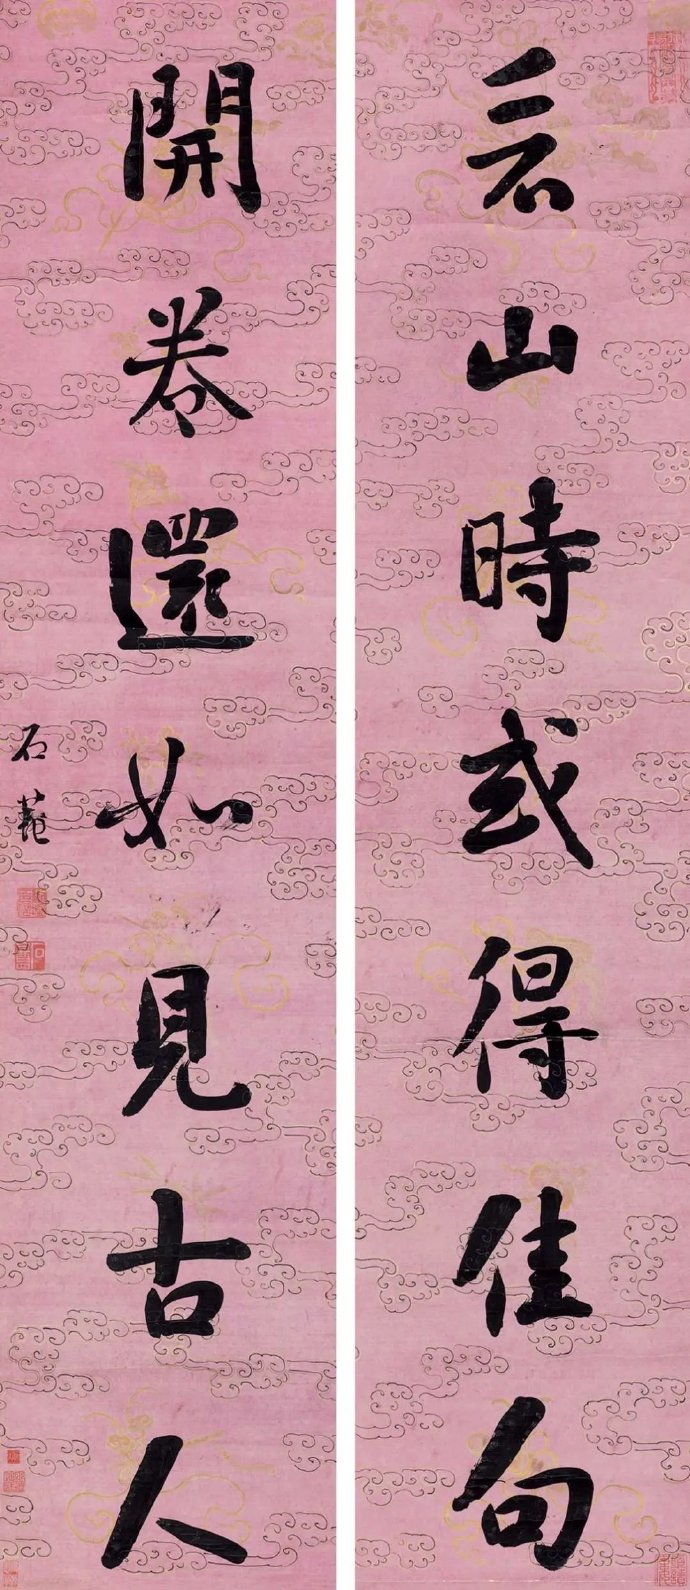 看山時或得佳句
開卷還如見古人
石菴